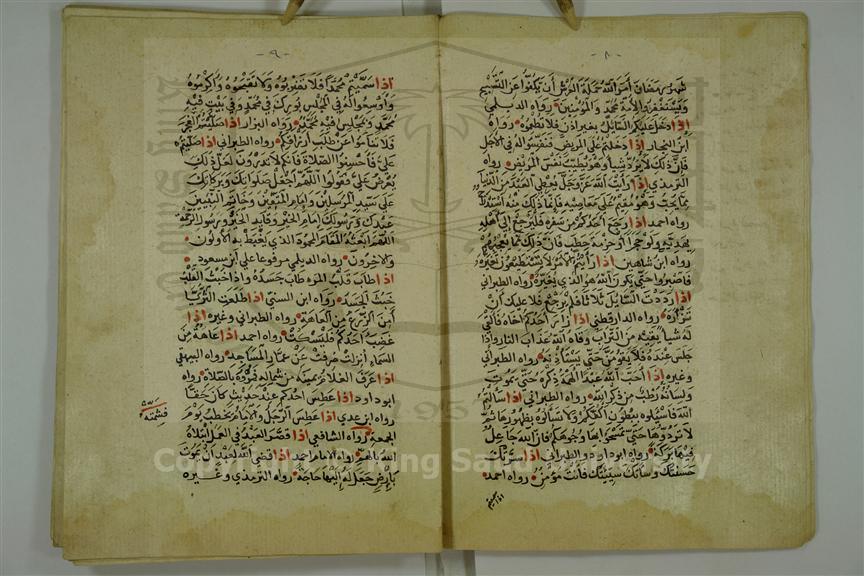 - ٨ -
شهر رمضان أمر الله حملة العرش أن يكفوا عن التسبيح
ويستغفروا لأمة محمد والمؤمنين رواه الديلمي
اذا دخل عليكم السائل بغير اذن فلا تطعموه رواه
ابن النجار اذا دخلتم على المريض فنفسوا له في الأجل
فان ذلك لا يرد شيأ وهو يطيب نفس المريض رواه
الترمذي اذا رأيت الله عز وجل يعطي العبد من الدنيا
ما يحب وهو مقيم على معاصيه فانما ذلك منه استدراج
رواه احمد اذا رجع احدكم من سفره فليرجع الى اهله
بهدية ولو حجرا او حزمة حطب فان ذلك مما يعجبهم
رواه ابن شاهين اذا رأيتم الامر لا تستطيعون تغييره
فاصبروا حتى يكون الله هو الذي يغيره رواه الطبراني
اذا رددت السائل ثلاثا فلم يرجع فلا عليك ان
تزبره رواه الدارقطني اذا زار احدكم اخاه فالقى
له شيأ يقيه من التراب وقاه الله عذاب النار واذا
جلس عنده فلا يقومن حتى يستأذنه رواه الطبراني
وغيره اذا أحب الله عبدا الهمه ذكره حتى يموت
ولسانه رطب من ذكر الله رواه الطبراني اذا سألتم
الله فاسئلوه ببطون اكفكم ولا تسألوه بظهورها ثم
لا تردوها حتى تمسحوا بها وجوهكم فان الله جاعل
فيها بركة رواه ابو داود والطبراني اذا سرتك
حسنتك وساءتك سيئتك فانت مؤمن رواه احمد
اذا سميتم
- ٩ -
اذا سميتم محمدا فلا تضربوه ولا تقبحوه وأكرموه
وأوسعوا له في المجلس بورك في محمد وفي بيت فيه
محمد ومجلس فيه محمد رواه البزار اذا صليتم الفجر
فلا تناموا عن طلب أرزاقكم رواه الطبراني اذا صليتم
علي فأحسنوا الصلاة فانكم لا تدرون لعل ذلك
يعرض علي وقولوا اللهم اجعل صلواتك وبركاتك
على سيد المرسلين وامام المتقين وخاتم النبيين
عبدك ورسولك امام الخير وقائد الخير ورسول الرحمة
اللهم ابعثه المقام المحمود الذي يغبطه به الأولون
والآخرون رواه الديلمي مرفوعا عن ابن مسعود
اذا طاب قلب المرء طاب جسده واذا خبث القلب
خبث الجسد رواه ابن السني اذا طلعت الثريا
أمن الزرع من العاهة رواه الطبراني وغيره اذا
غضب احدكم فليسكت رواه احمد اذا عاهة من
السماء أنزلت صرفت عن عمار المساجد رواه البيهقي
اذا عرف الغلام يمينه من شماله فمروه بالصلاة رواه
ابو داود اذا عطس احدكم عند حديث كان حقا
رواه ابن عدي اذا عطس الرجل والامام يخطب يوم
الجمعة فشمته رواه الشافعي اذا قصر العبد في العمل ابتلاه
الله بالهم رواه الامام احمد اذا قضى الله لعبد أن يموت
بارض جعل له اليها حاجة رواه الترمذي وغيره
Copyright © King Saud University